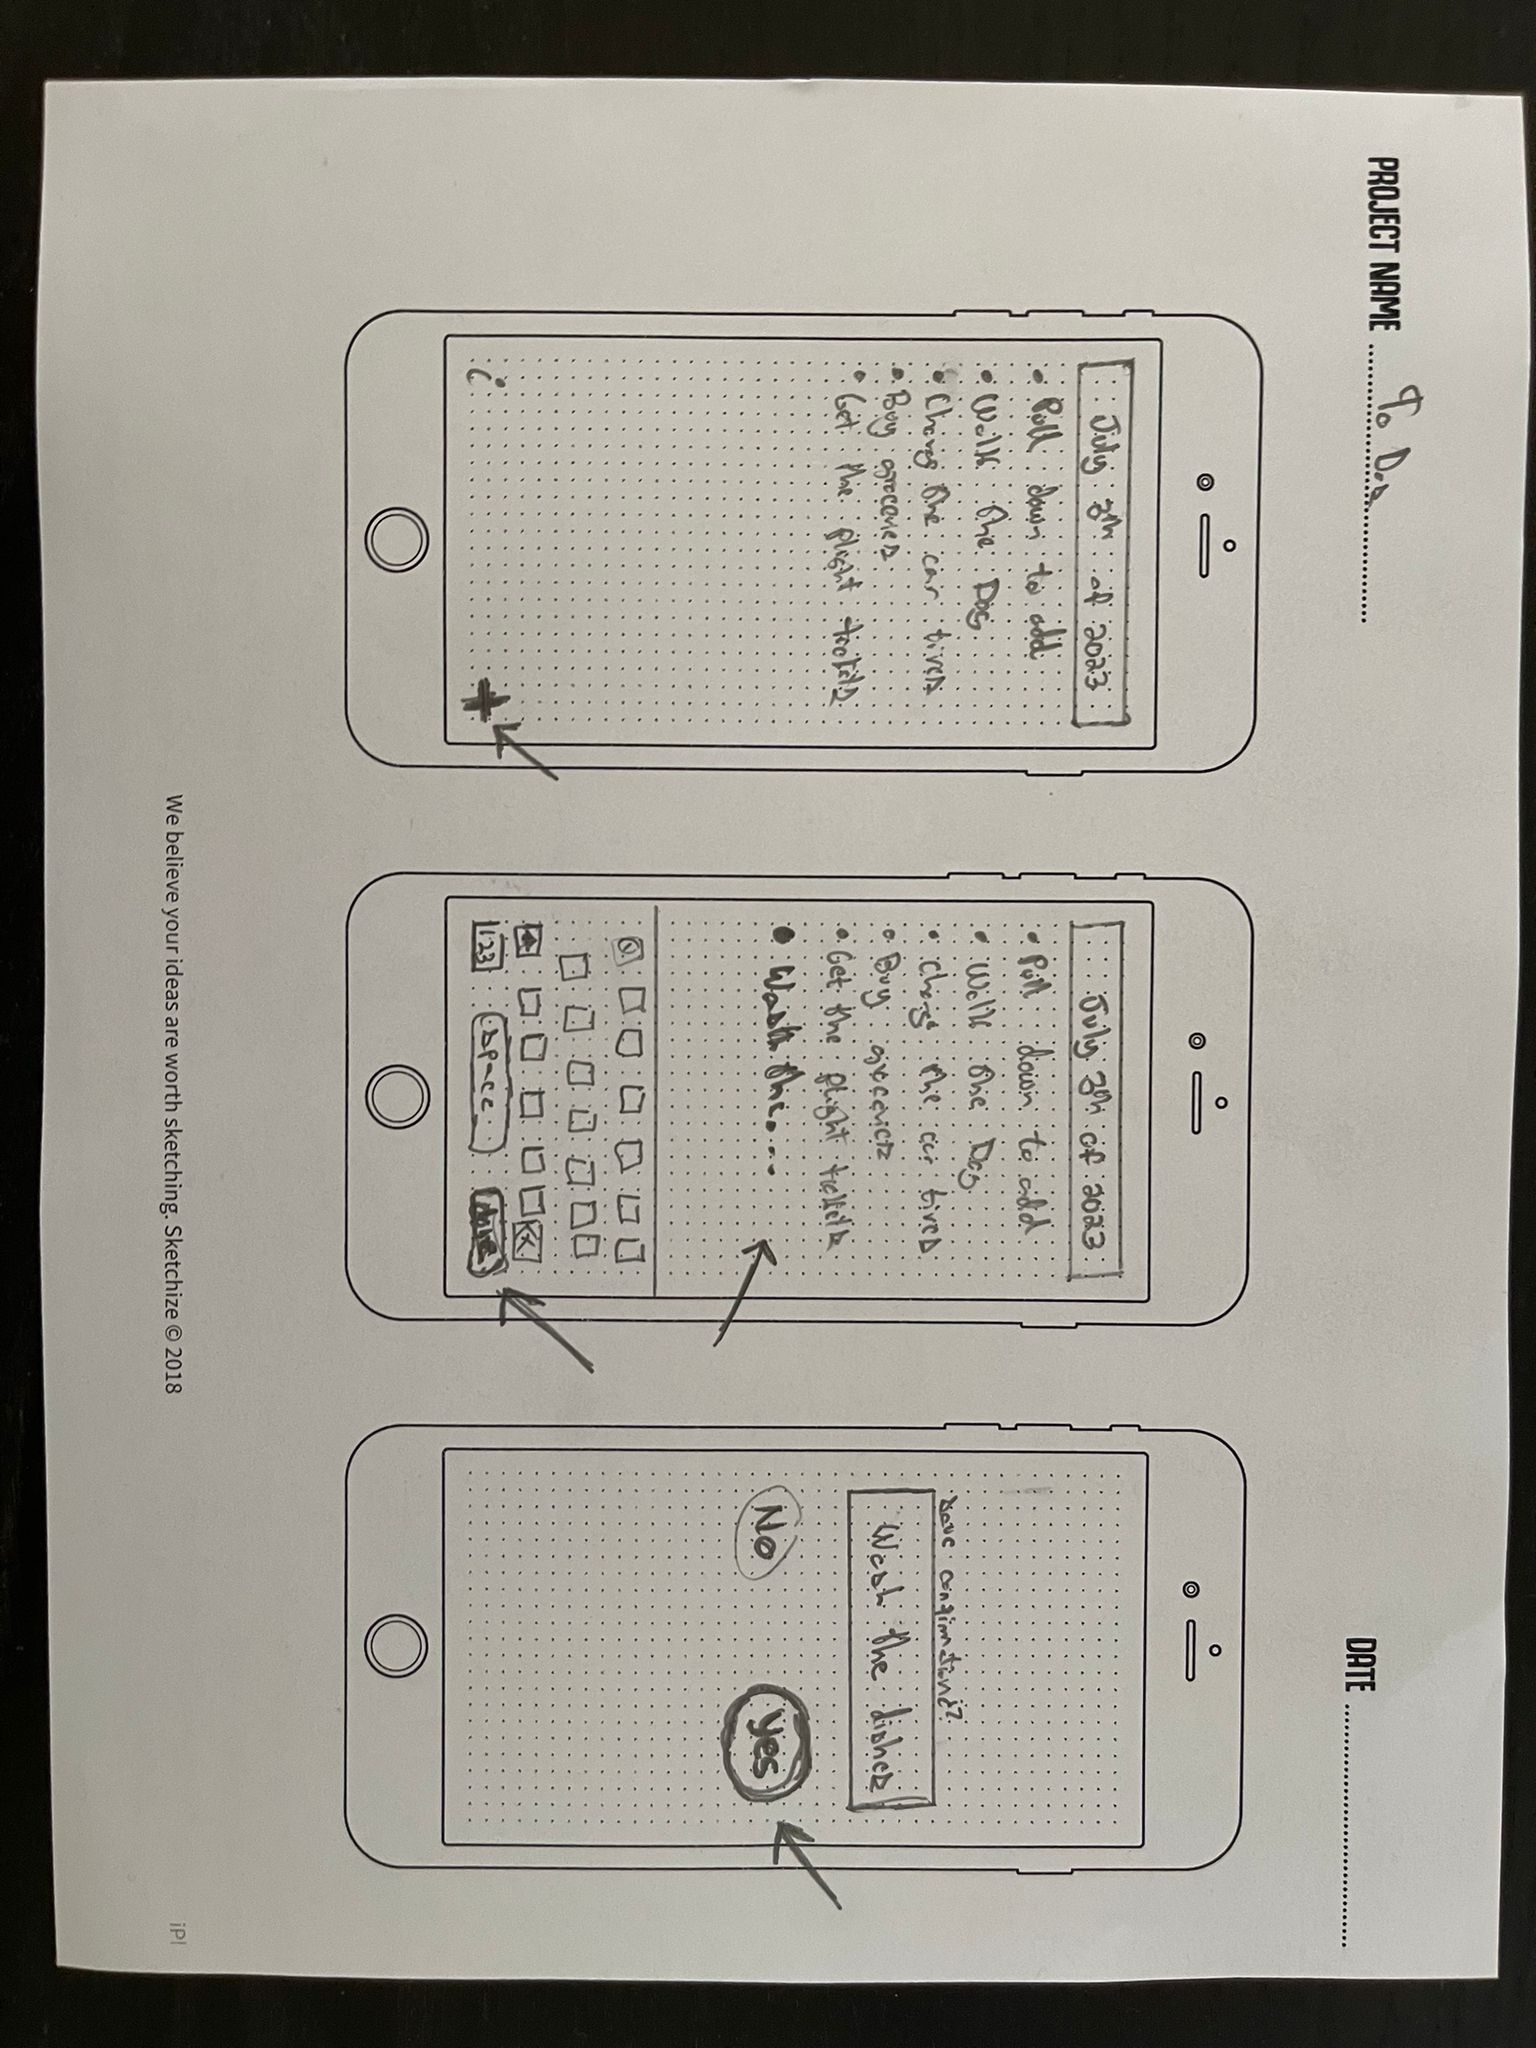 PROJECT NAME To Dos
DATE
July 3th of 2023
Pull down to add
Walk the Dog
Change the car tires
Buy groceries
Get the flight tickets
July 3th of 2023
Pull down to add
Walk the Dog
Change the car tires
Buy groceries
Get the flight tickets
Wash the....
123 space done
Save confirmation?
Wash the dishes
No Yes
We believe your ideas are worth sketching. Sketchize © 2018
iPl